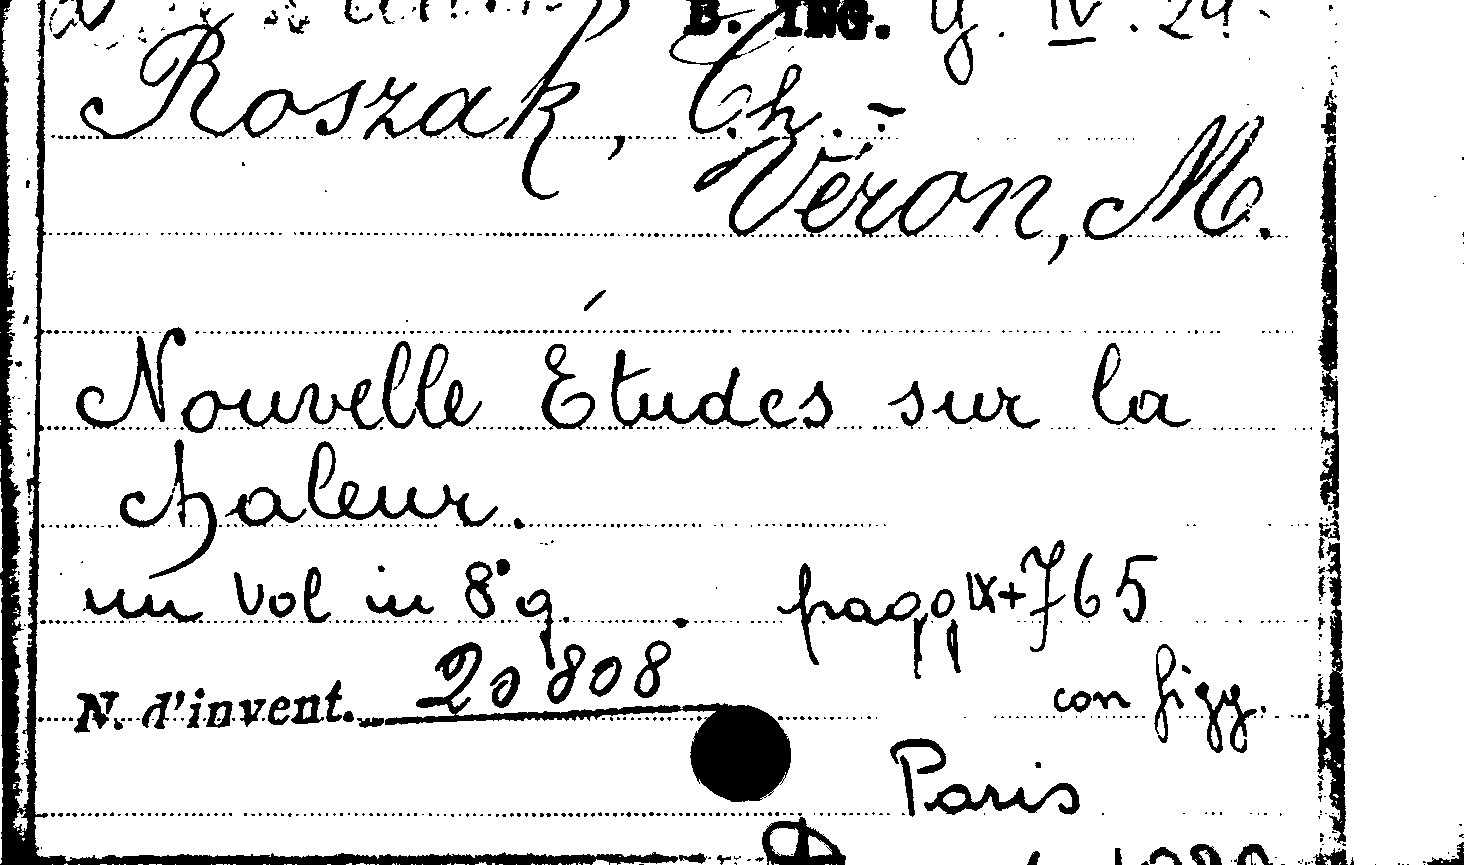 B. ING. y. IV. 24.
Roszak, Ch. -
Véron, M.
Nouvelle Études sur la
chaleur.
un vol in 8° g. pagg IX+765
N. d'invent. 20808
con figg.
Paris